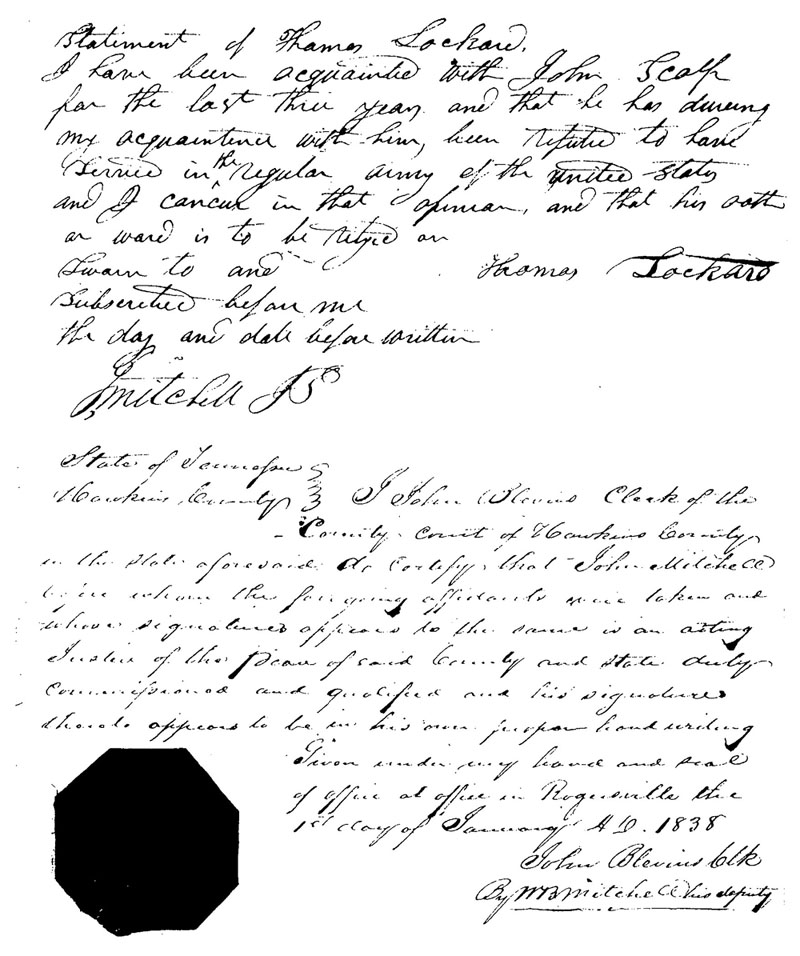 Statement of Thomas Lockard.
I have been acquainted with John Scalf
for the last three years and that he has dureing
my acquaintence with him, been reputed to have
served in the regular army of the united states
and I concur in that opinion, and that his oath
or word is to be relyed on
Sworn to and Thomas Lockard
Subscribed before me
the day and date before written
J Mitchell JP
State of Tennessee
Hawkins County I John Blevins Clerk of the
County court of Hawkins County
in the state aforesaid do certify that John Mitchell
before whom the foregoing affidavits were taken and
whose signatures appears to the same is an acting
Justice of the peace of said County and state duly
commissioned and qualified and his signatures
thereto appears to be in his own proper hand writing
Given under my hand and seal
of office at office in Rogersville the
1st day of January A D. 1838
John Blevins Clk
By WB Mitchell his deputy